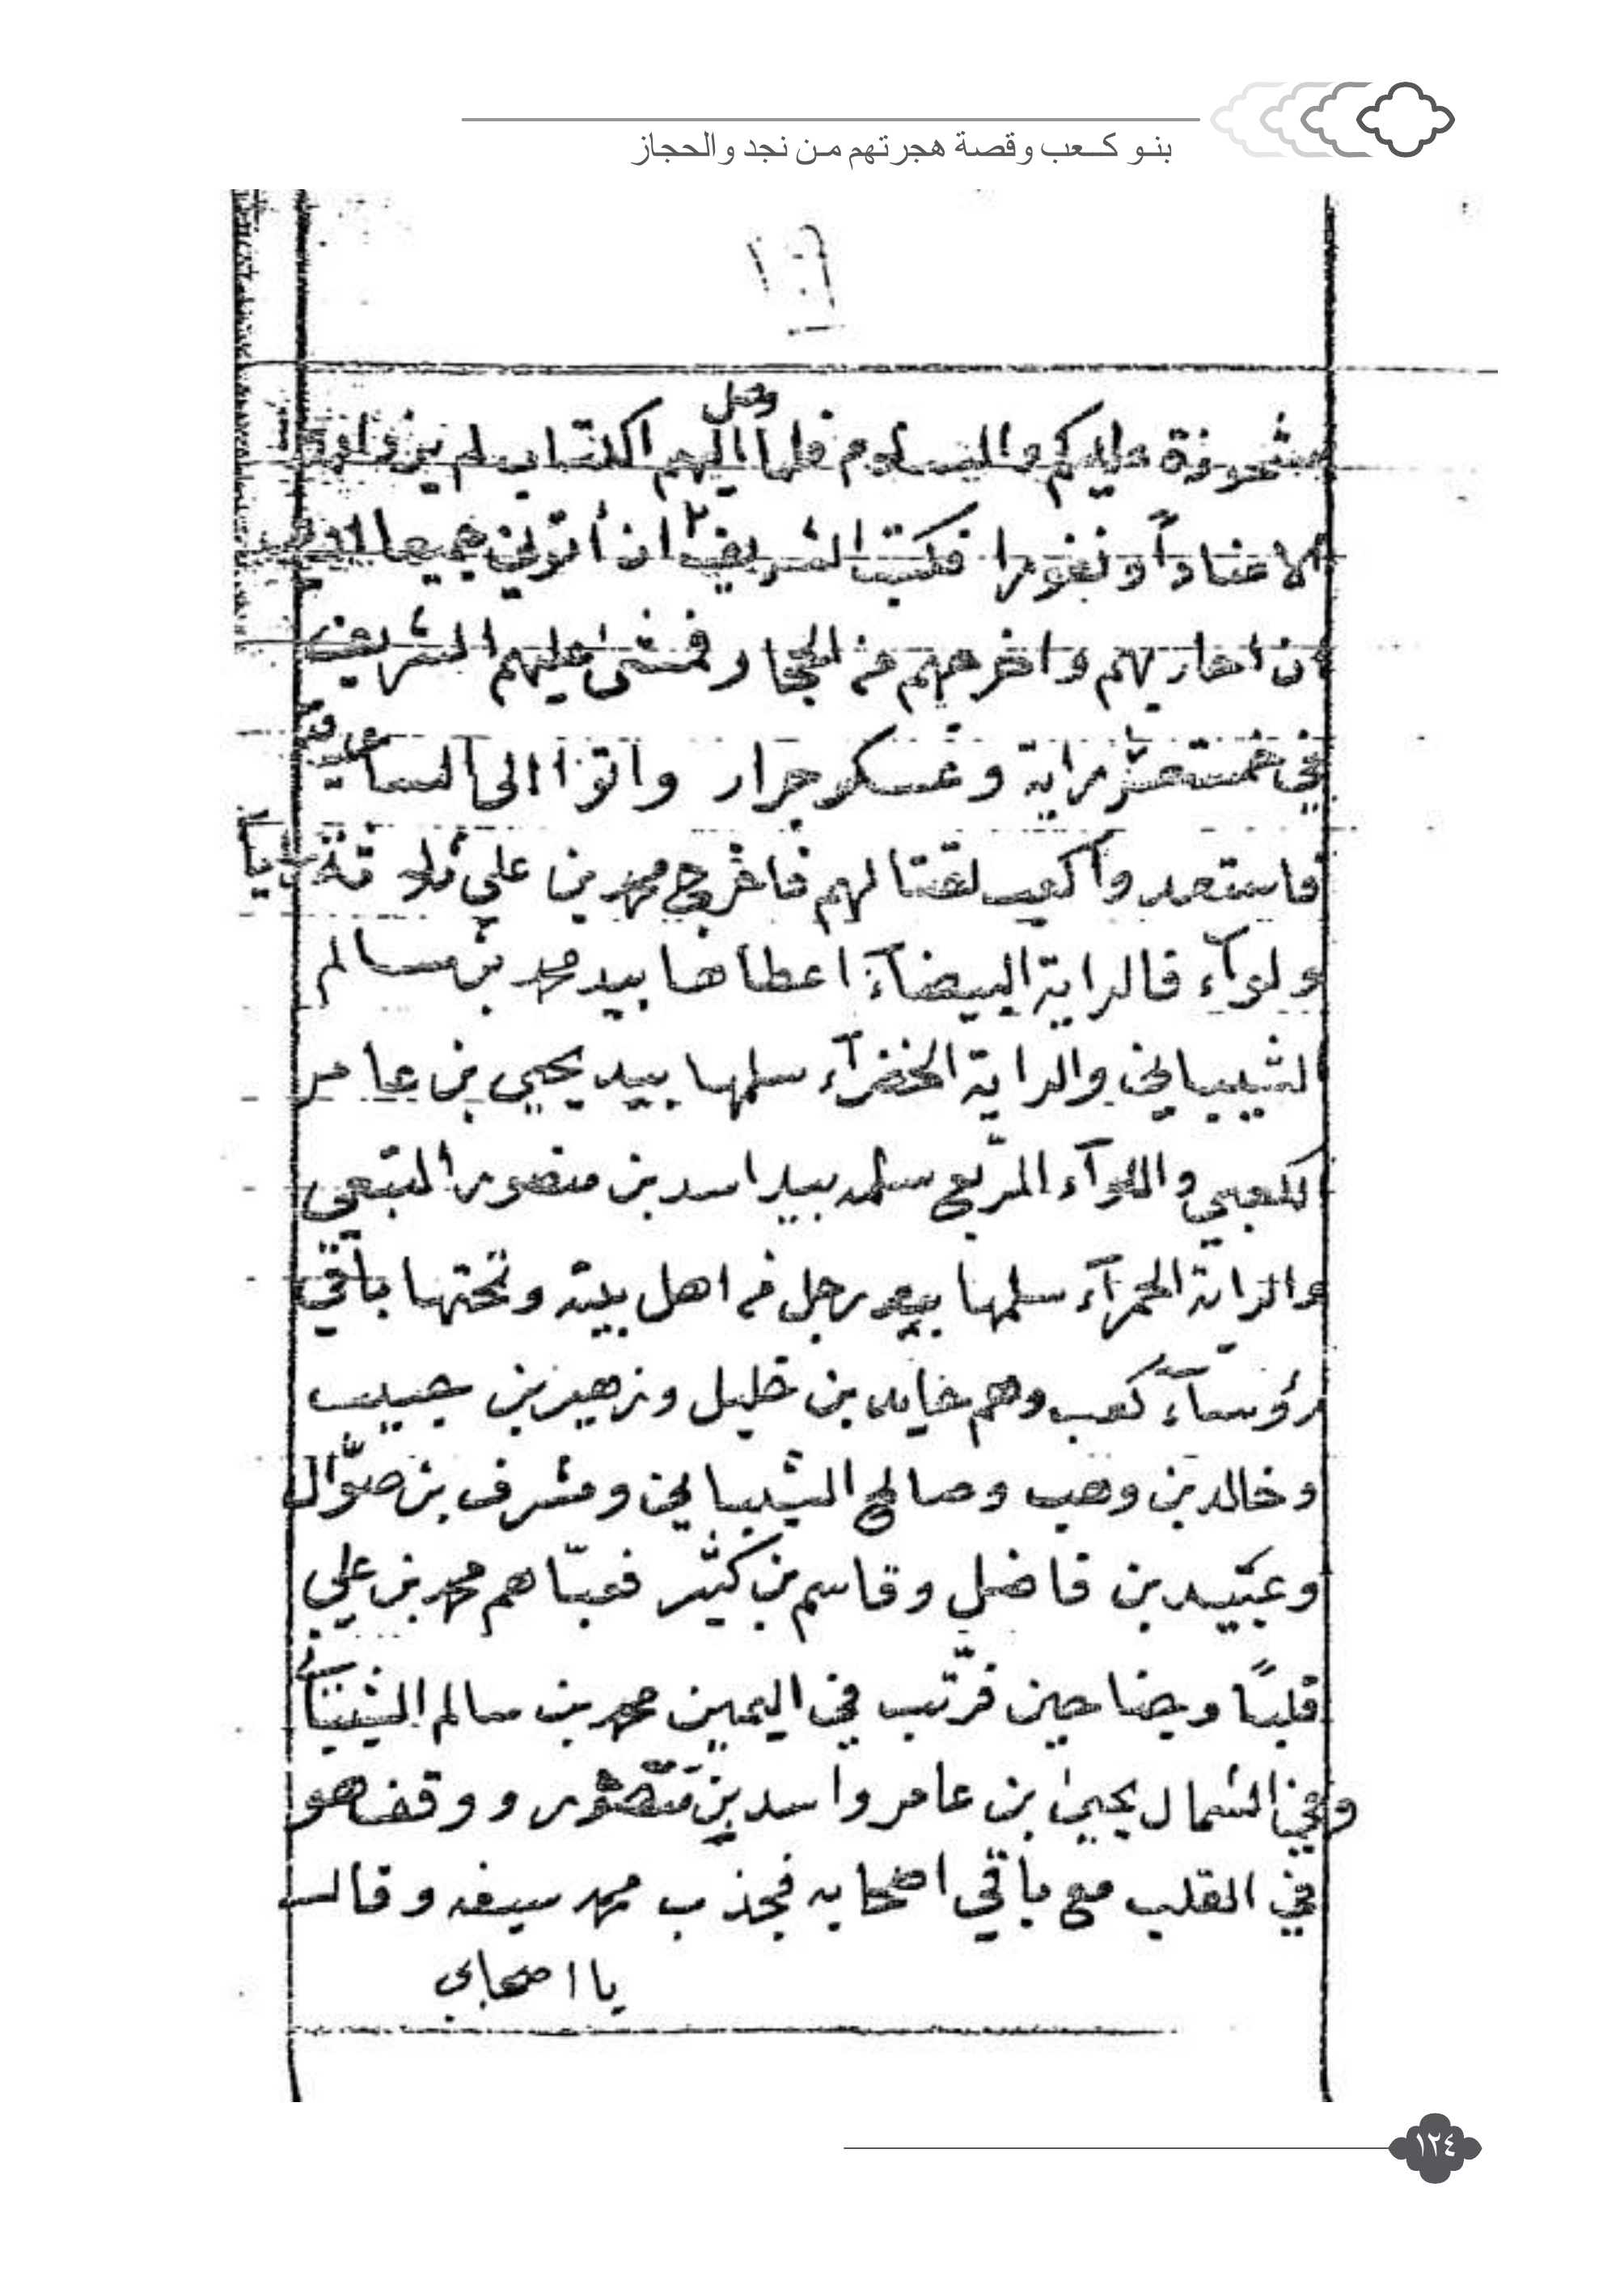 بنو كعب وقصة هجرتهم من نجد والحجاز
١٠٦
مشحونة عليكم والسلام فلما وصل اليهم اكتاب لم يزدادوا
الا عناداً ونفورا فكتب الشريف ان أتوني جميعا
ان احاربهم واخرجهم من الحجاز فمشى عليهم الشريف
في خمستعشر راية وعسكر جرار واتوا الى الساعدية
فاستعدوا كعب لقتالهم فاخرج محمد بن علي ثلاثة رايات
ولوآء فالراية البيضآء اعطاها بيد محمد بن سالم
الشيباني والراية الخضرآء سلمها بيد يحيى بن عامر
الكعبي واللوآء المربع سلمه بيد اسد بن منصور التبعي
والراية الحمرآء سلمها بيد رجل من اهل بيته وتحتها باقي
رؤسآء كعب وهم خالد بن خليل وزهير بن حبيب
وخالد بن وهب وصالح الشيباني ومشرف بن صوّال
وعبيد بن فاضل وقاسم بن كثير فعبّاهم محمد بن علي
قلباً وجناحين فرتّب في اليمين محمد بن سالم الشيباني
وفي الشمال يحيى بن عامر واسد بن منصور ووقف هو
في القلب مع باقي اصحابه فجذب محمد سيفه وقال
يا اصحابي
١٢٤